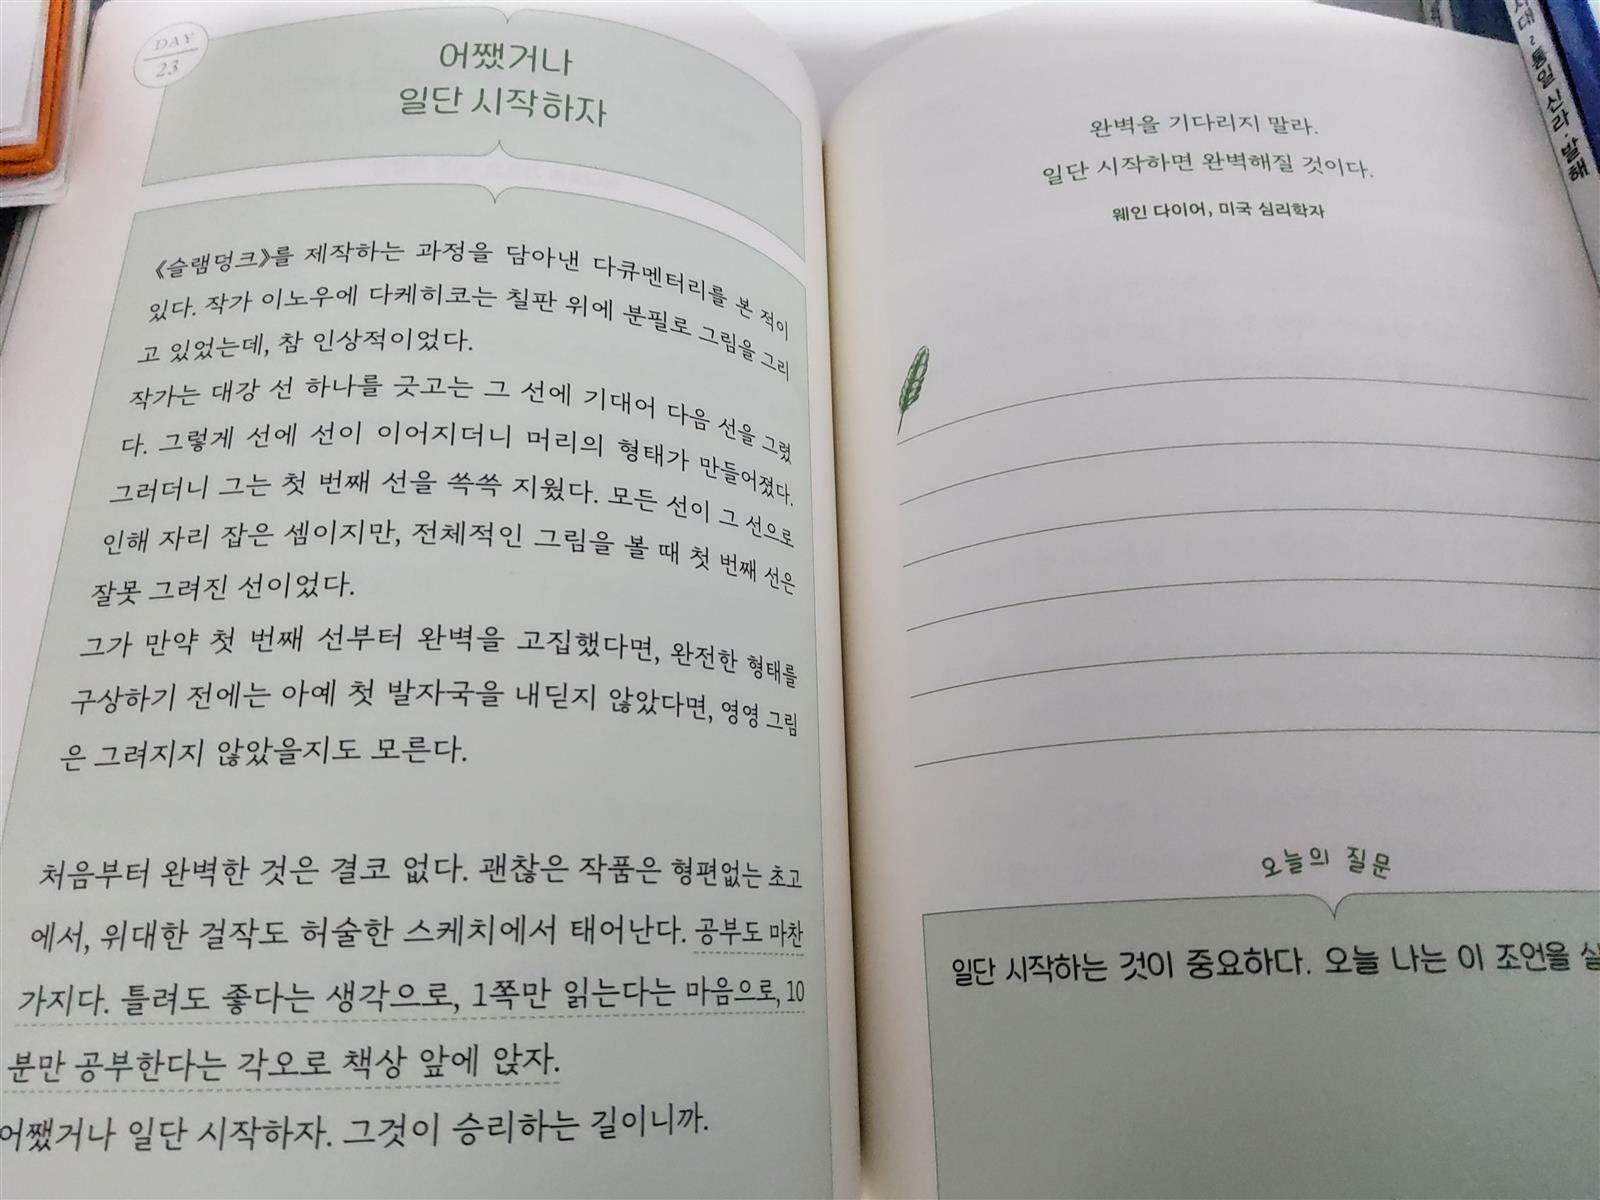 DAY
23
어쨌거나
일단 시작하자
《슬램덩크》를 제작하는 과정을 담아낸 다큐멘터리를 본 적이
있다. 작가 이노우에 다케히코는 칠판 위에 분필로 그림을 그리
고 있었는데, 참 인상적이었다.
작가는 대강 선 하나를 긋고는 그 선에 기대어 다음 선을 그렸
다. 그렇게 선에 선이 이어지더니 머리의 형태가 만들어졌다.
그러더니 그는 첫 번째 선을 쓱쓱 지웠다. 모든 선이 그 선으로
인해 자리 잡은 셈이지만, 전체적인 그림을 볼 때 첫 번째 선은
잘못 그려진 선이었다.
그가 만약 첫 번째 선부터 완벽을 고집했다면, 완전한 형태를
구상하기 전에는 아예 첫 발자국을 내딛지 않았다면, 영영 그림
은 그려지지 않았을지도 모른다.
처음부터 완벽한 것은 결코 없다. 괜찮은 작품은 형편없는 초고
에서, 위대한 걸작도 허술한 스케치에서 태어난다. 공부도 마찬
가지다. 틀려도 좋다는 생각으로, 1쪽만 읽는다는 마음으로, 10
분만 공부한다는 각오로 책상 앞에 앉자.
어쨌거나 일단 시작하자. 그것이 승리하는 길이니까.
완벽을 기다리지 말라.
일단 시작하면 완벽해질 것이다.
웨인 다이어, 미국 심리학자
오늘의 질문
일단 시작하는 것이 중요하다. 오늘 나는 이 조언을
시대~통일 신라·발해